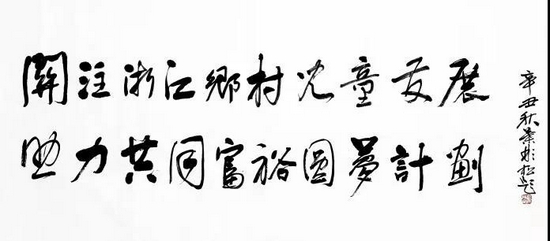 關注浙江鄉村児童發展
助力共同富裕圓夢計劃
辛丑秋葉彤松題